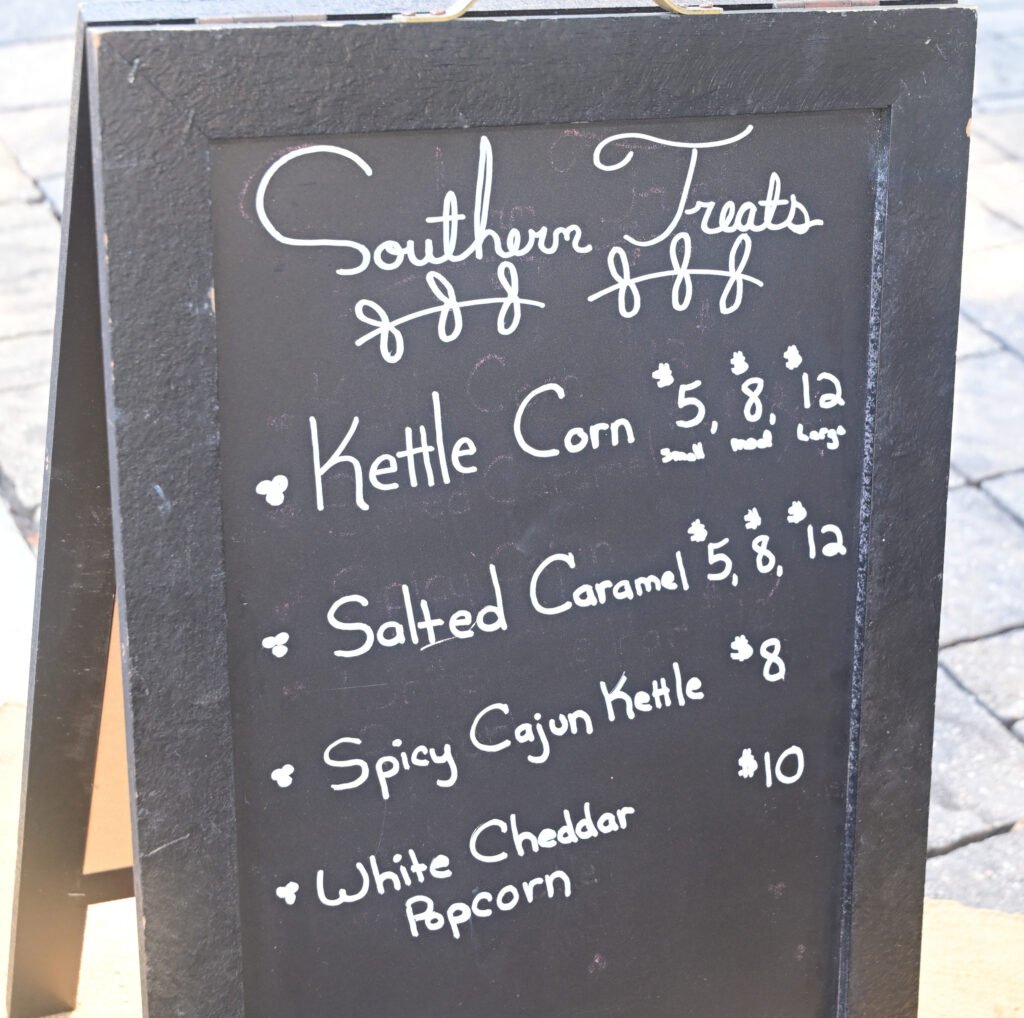 Southern Treats
Kettle Corn $5, $8, $12
small med Large
Salted Caramel $5, $8, $12
Spicy Cajun Kettle $8
White Cheddar $10
Popcorn